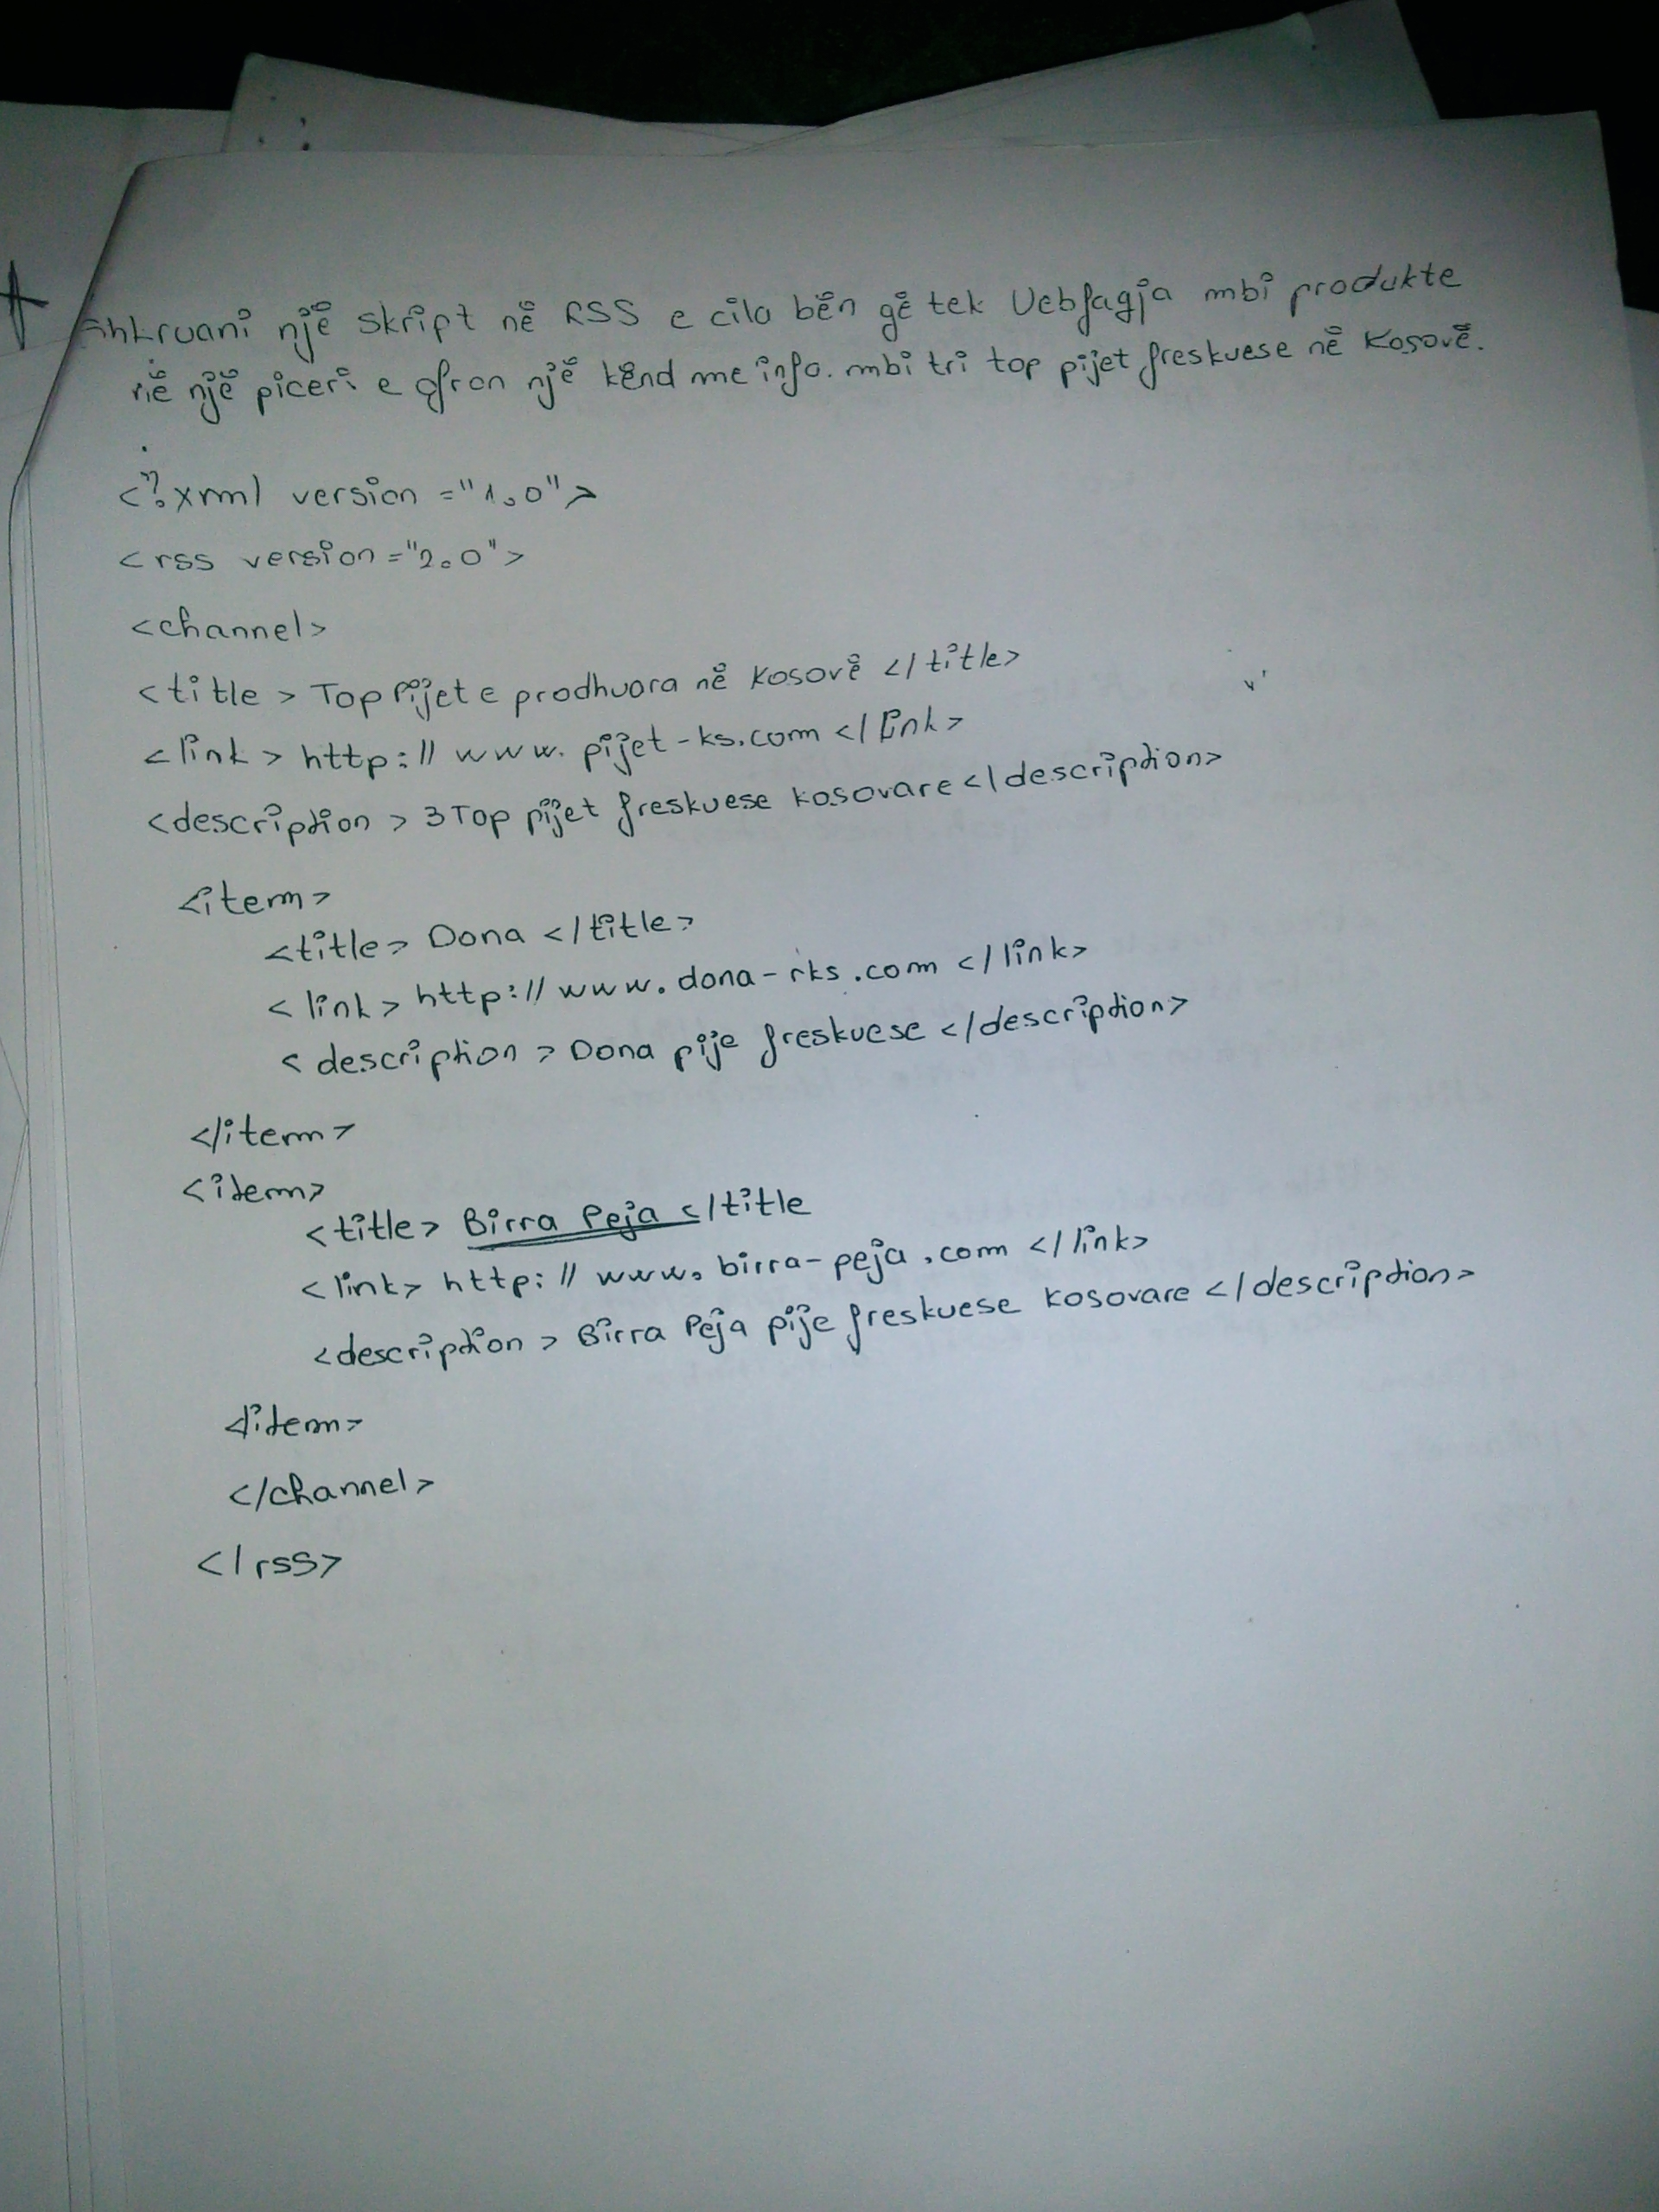 Shkruani një skript në RSS e cila bën që tek Uebfaqja mbi produkte
në një piceri e ofron një kënd me info. mbi tri top pijet freskuese në Kosovë.
<?xml version ="1.0">
<rss version ="2.0">
<channel>
<title> Top Pijet e prodhuara në Kosovë </title>
<link> http://www.pijet-ks.com </link>
<description> 3 Top pijet freskuese kosovare </description>
<item>
<title> Dona </title>
<link> http://www.dona-rks.com </link>
<description> Dona pije freskuese </description>
</item>
<item>
<title> Birra Peja </title
<link> http://www.birra-peja.com </link>
<description> Birra Peja pije freskuese kosovare </description>
</item>
</channel>
</rss>